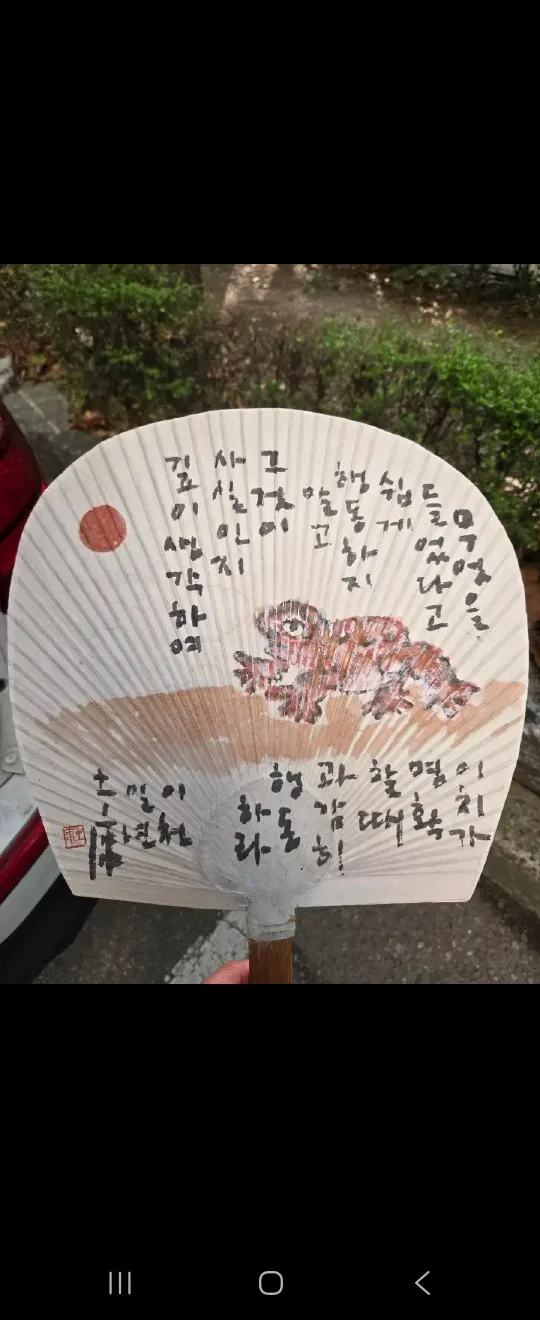 무엇을
들었다고
쉽게
행동하지
말고
그것이
사실인지
깊이생각하여
이치가
명확
할때
과감히!
행동
하라
이천